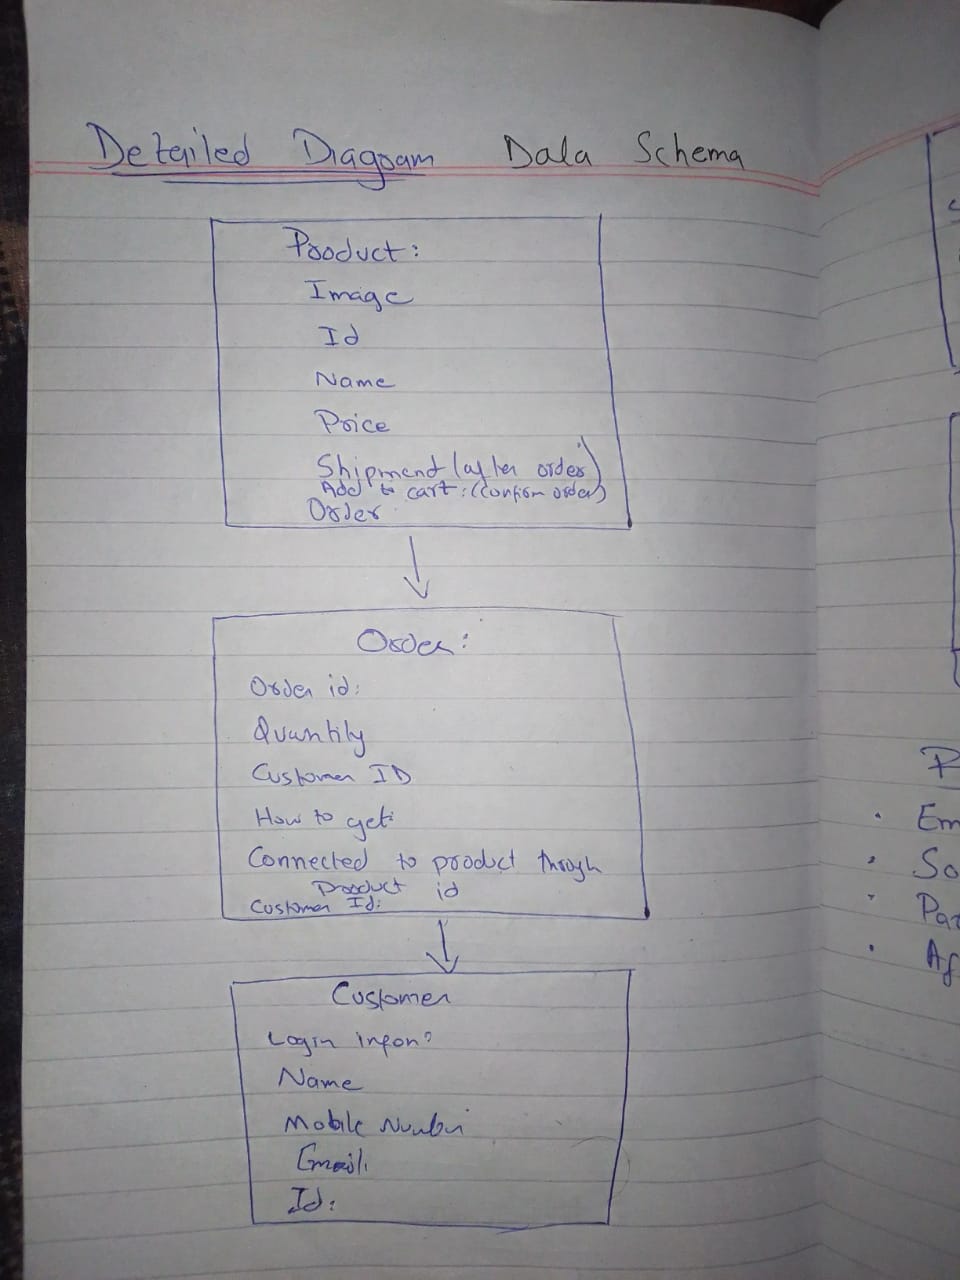 Detailed Diagram Data Schema
Product:
Image
Id
Name
Price
Shipment (after order)
Add to cart: (Confirm order)
Order
Order:
Order id:
Quantity
Customer ID
How to get:
Connected to product through
Product id
Customer Id:
Customer
Login infon?
Name
Mobile Number
Email
Id:
Em
So
Par
Af